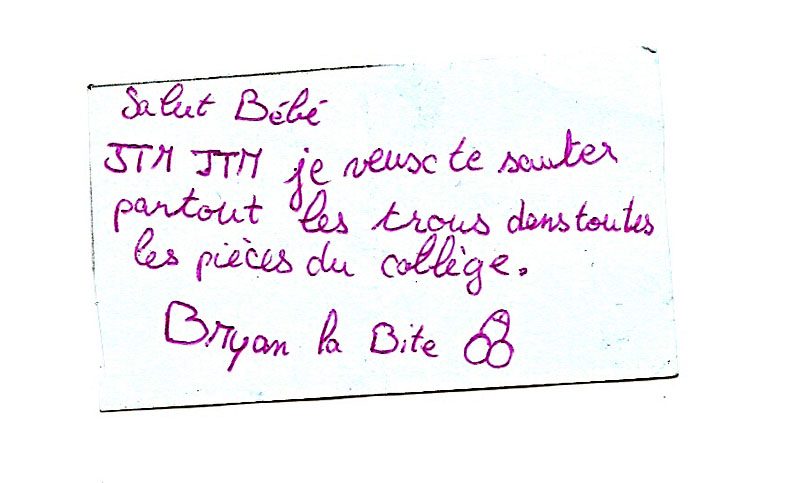 Salut Bébé
JTM JTM je veux te sauter
partout les trous dans toutes
les pièces du collège.
Bryan la Bite